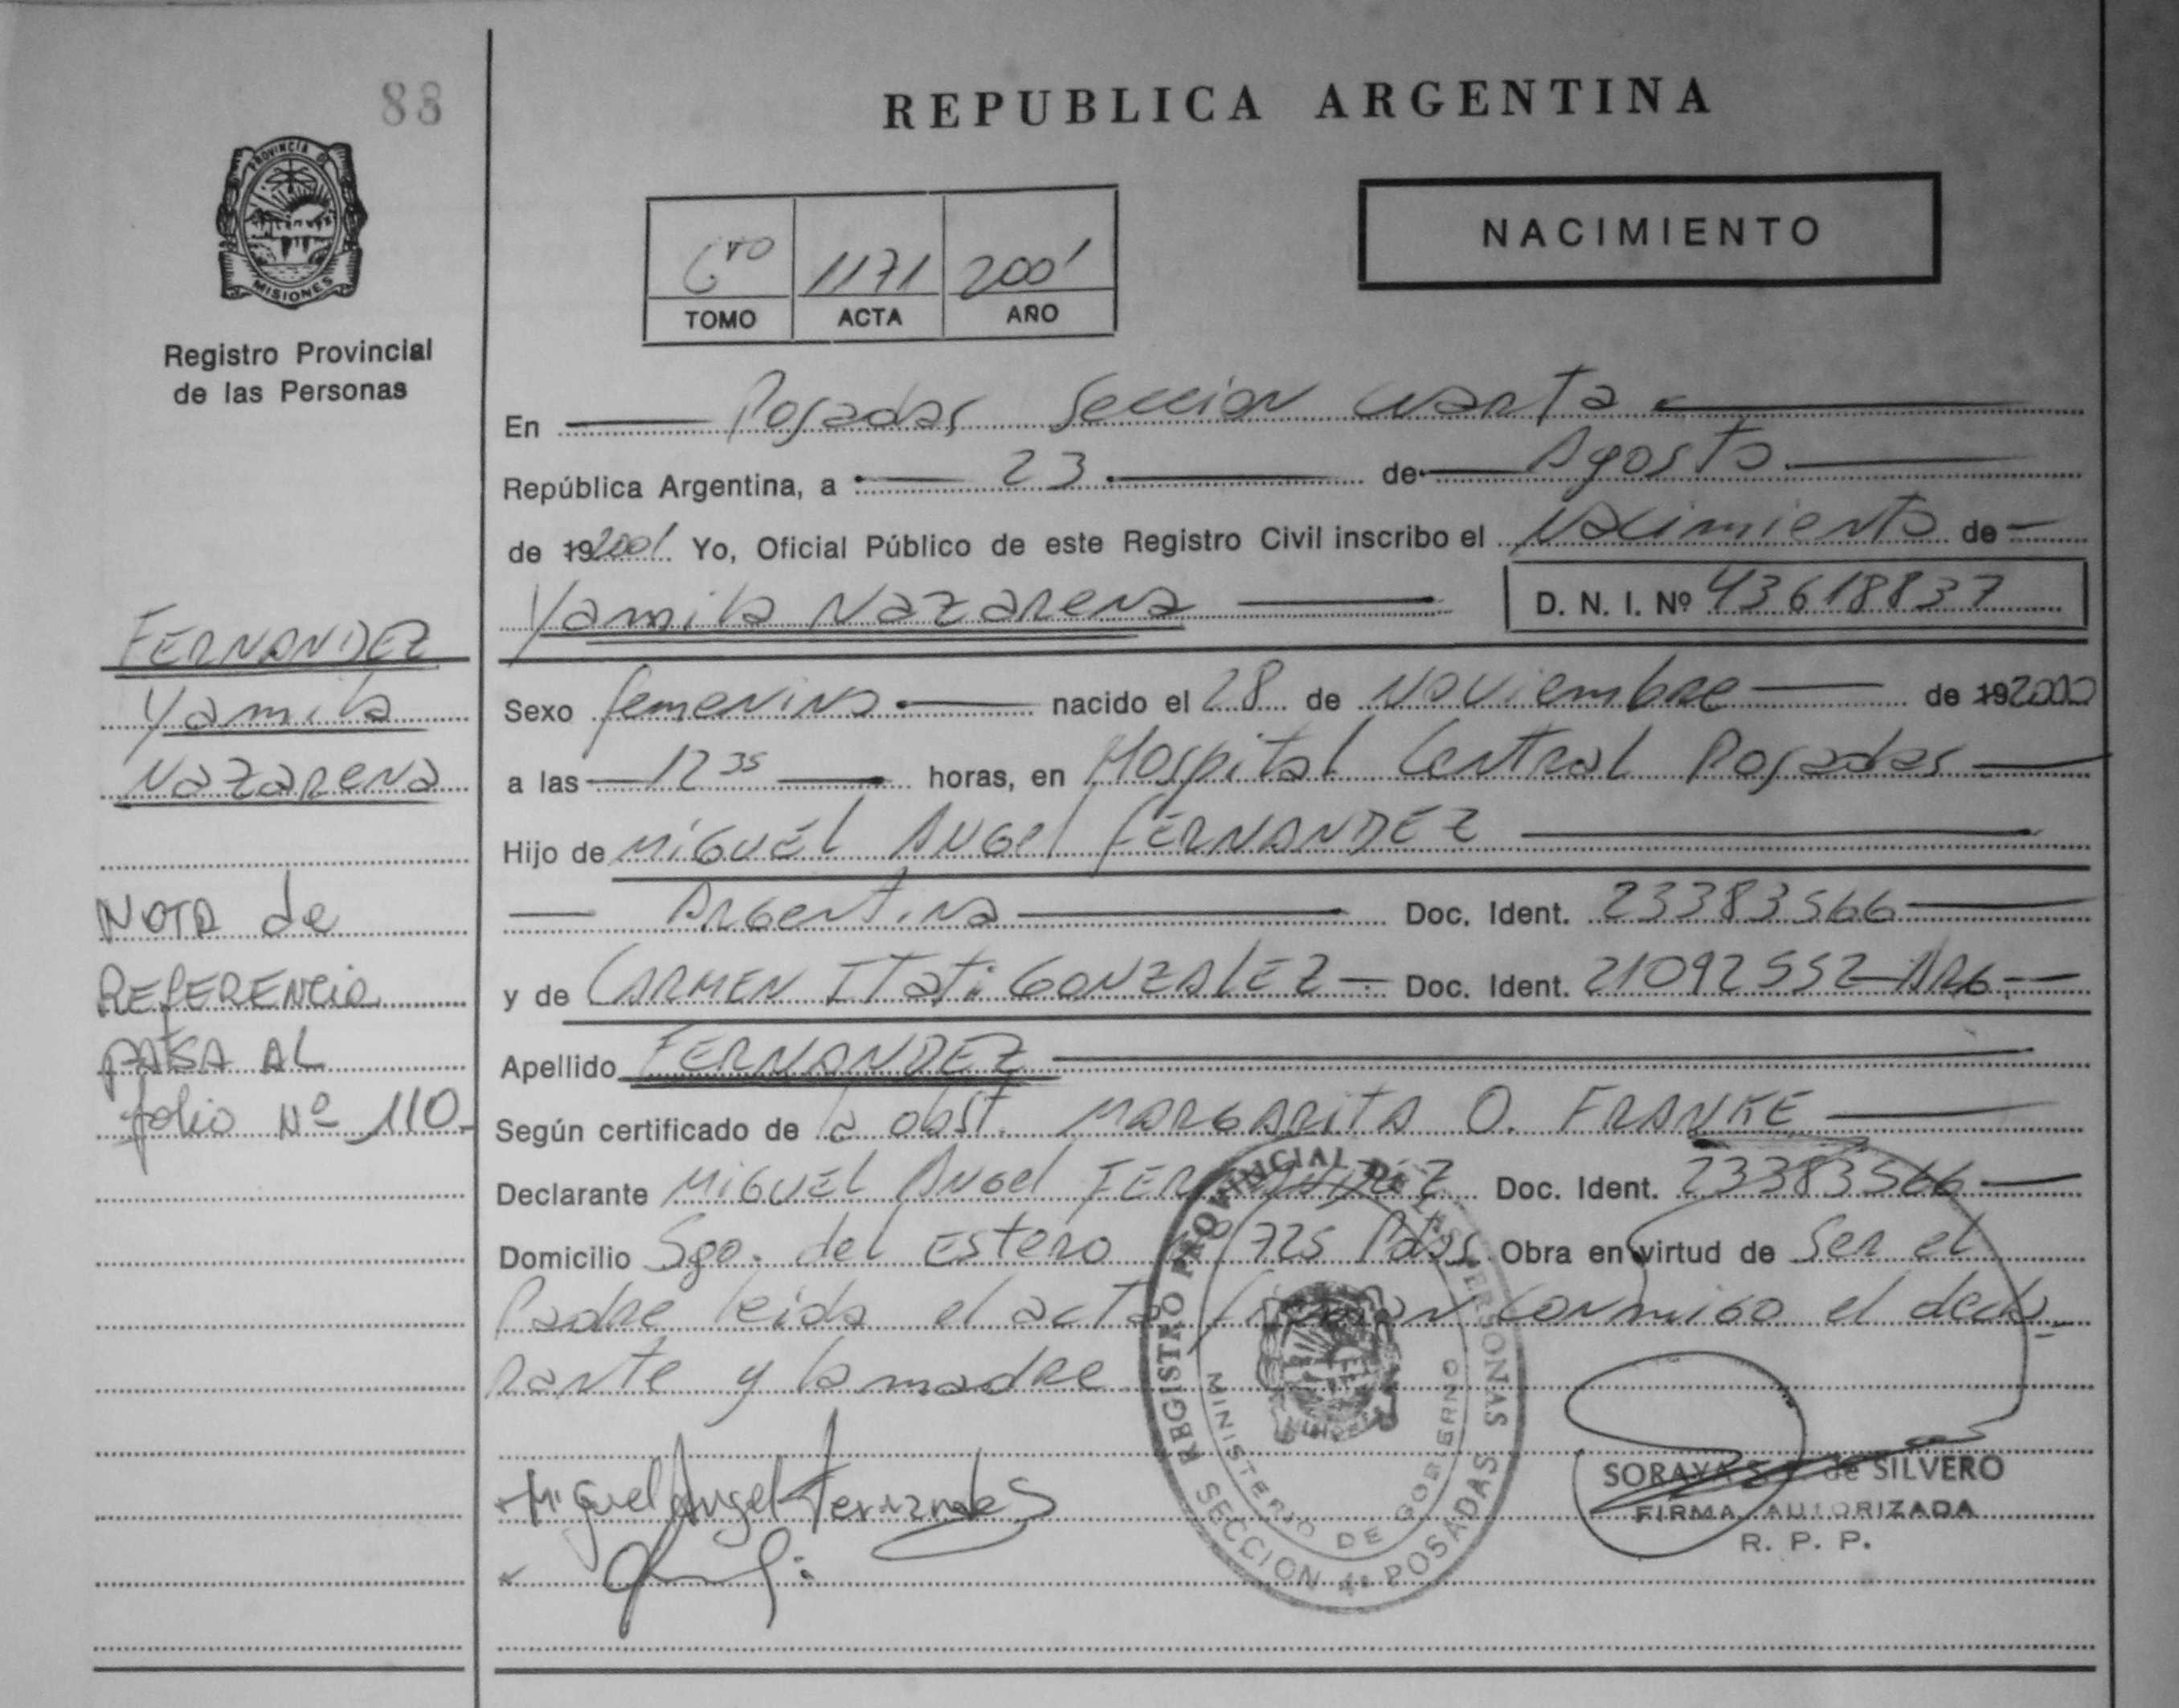 88
REPUBLICA ARGENTINA
PROVINCIA DE
MISIONES
Registro Provincial
de las Personas
6to 1171 2001
TOMO ACTA AÑO
NACIMIENTO
En Posadas Sección Cuarta
República Argentina, a 23 de Agosto
de 19 2001 Yo, Oficial Público de este Registro Civil inscribo el Nacimiento de
Yamila Nazarena D. N. I. Nº 43618837
FERNANDEZ
Yamila
Nazarena
Sexo femenino nacido el 28 de Noviembre de 19 2000
a las 12 35 horas, en Hospital Central Posadas
Hijo de MIGUEL ANGEl FERNANDEZ
Argentina Doc. Ident. 23383566
y de CARMEN ITatí GONZALEZ Doc. Ident. 21092552 ARG
Apellido FERNANDEZ
NOTA de
REFERENCIA
PASA AL
folio Nº 110
Según certificado de la obst. MARGARITA O. FRANKE
Declarante MIGUEL ANGEl FERNANDEZ Doc. Ident. 23383566
Domicilio Sgo. del Estero 1725 Pdas Obra en virtud de Ser el
Padre leida el acta firman conmigo el decla-
rante y la madre
Miguel Angel Fernandes
REGISTRO PROVINCIAL DE LAS PERSONAS
MINISTERIO DE GOBIERNO
SECCION 4ª POSADAS
SORAYA de SILVERO
FIRMA AUTORIZADA
R. P. P.